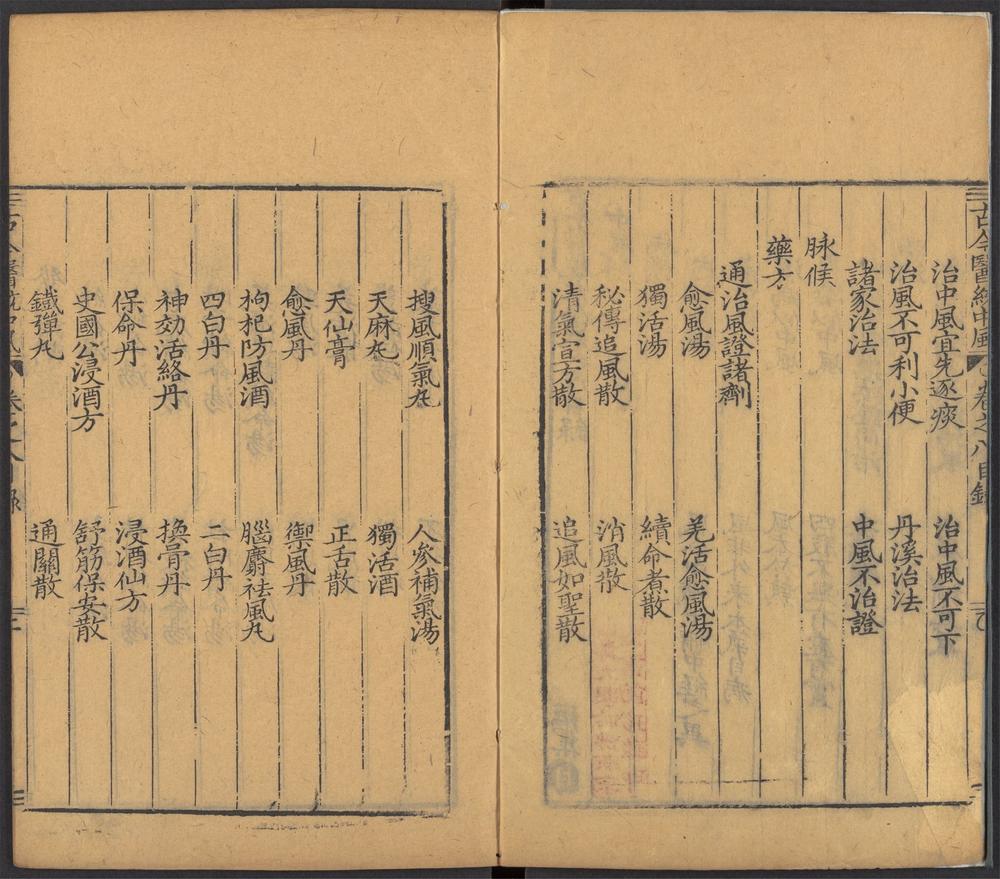 古今醫統中風 卷之八目錄
治中風宜先逐痰 治中風不可下
治風不可利小便 丹溪治法
諸家治法 中風不治證
脉候
藥方
通治風證諸劑
愈風湯 羌活愈風湯
獨活湯 續命煮散
秘傳追風散 消風散
清氣宣方散 追風如聖散
搜風順氣丸 人參補氣湯
天麻丸 獨活酒
天仙膏 正舌散
愈風丹 禦風丹
枸杞防風酒 腦麝祛風丸
四白丹 二白丹
神効活絡丹 換骨丹
保命丹 浸酒仙方
史國公浸酒方 舒筋保安散
鐵彈丸 通關散
古今醫統中風 卷之八目錄 二